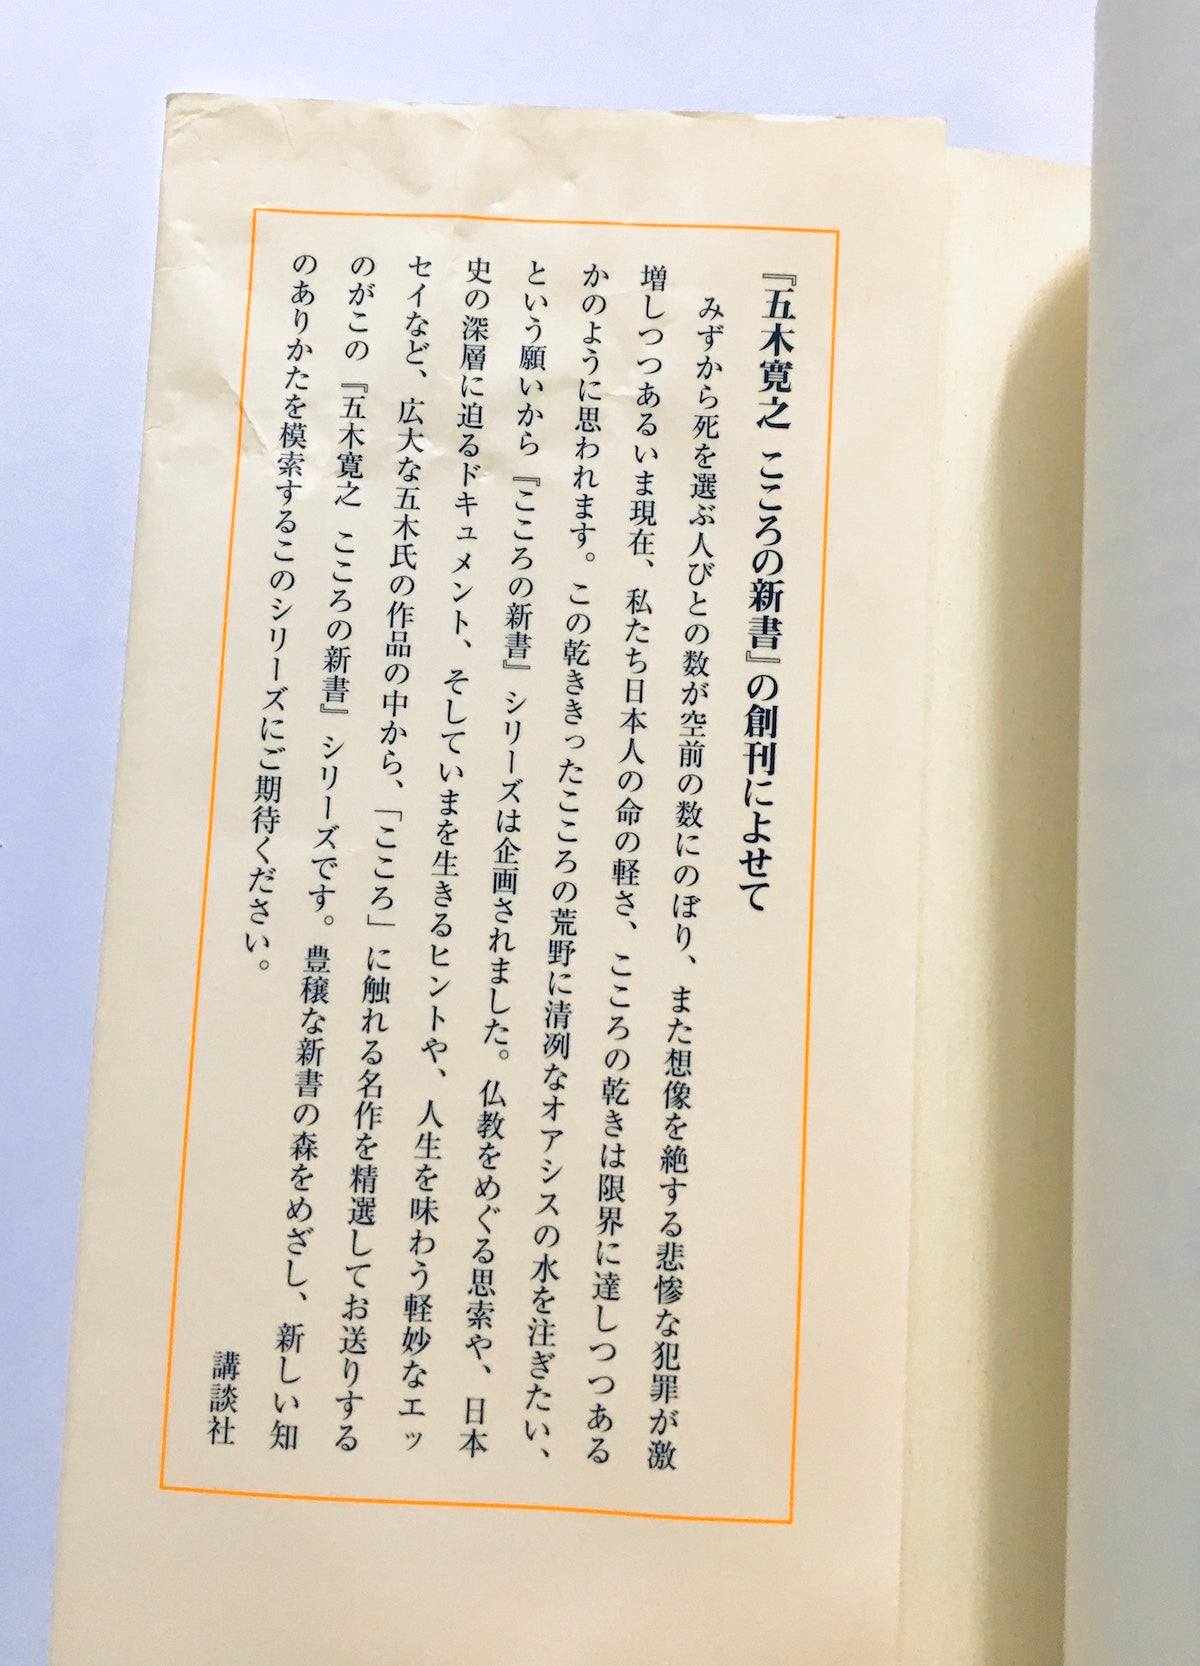 『五木寛之 こころの新書』の創刊によせて
みずから死を選ぶ人びとの数が空前の数にのぼり、また想像を絶する悲惨な犯罪が激
増しつつあるいま現在、私たち日本人の命の軽さ、こころの乾きは限界に達しつつある
かのように思われます。この乾ききったこころの荒野に清冽なオアシスの水を注ぎたい、
という願いから『こころの新書』シリーズは企画されました。仏教をめぐる思索や、日本
史の深層に迫るドキュメント、そしていまを生きるヒントや、人生を味わう軽妙なエッ
セイなど、広大な五木氏の作品の中から、「こころ」に触れる名作を精選してお送りする
のがこの『五木寛之 こころの新書』シリーズです。豊穣な新書の森をめざし、新しい知
のありかたを模索するこのシリーズにご期待ください。
講談社